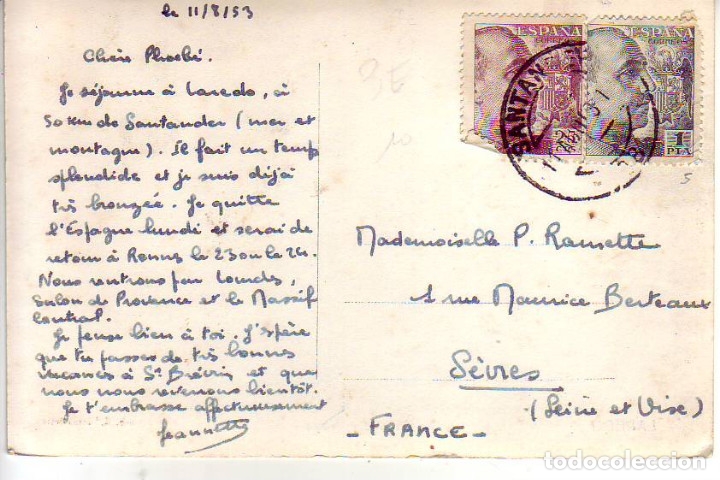 le 11/8/53
Chère Phoebé.
Je séjourne à Laredo, à
50 km de Santander (mer et
montagne). Il fait un temps
splendide et je suis déjà
très bronzée. Je quitte
l'Espagne lundi et serai de
retour à Rennes le 23 ou le 24.
Nous rentrons par Lourdes,
Salon de Provence et le Massif
Central.
Je pense bien à toi. J'espère
que tu passes de très bonnes
vacances à St Brévin et que
nous nous reverrons bientôt.
Je t'embrasse affectueusement
Jeannette
ESPAÑA
ESPAÑA
CORREOS
1
PTA
SANTAN
Mademoiselle P. Ramette
1 rue Maurice Berteaux
Sèvres
(Seine et Oise)
- FRANCE -
5
todocoleccion.net